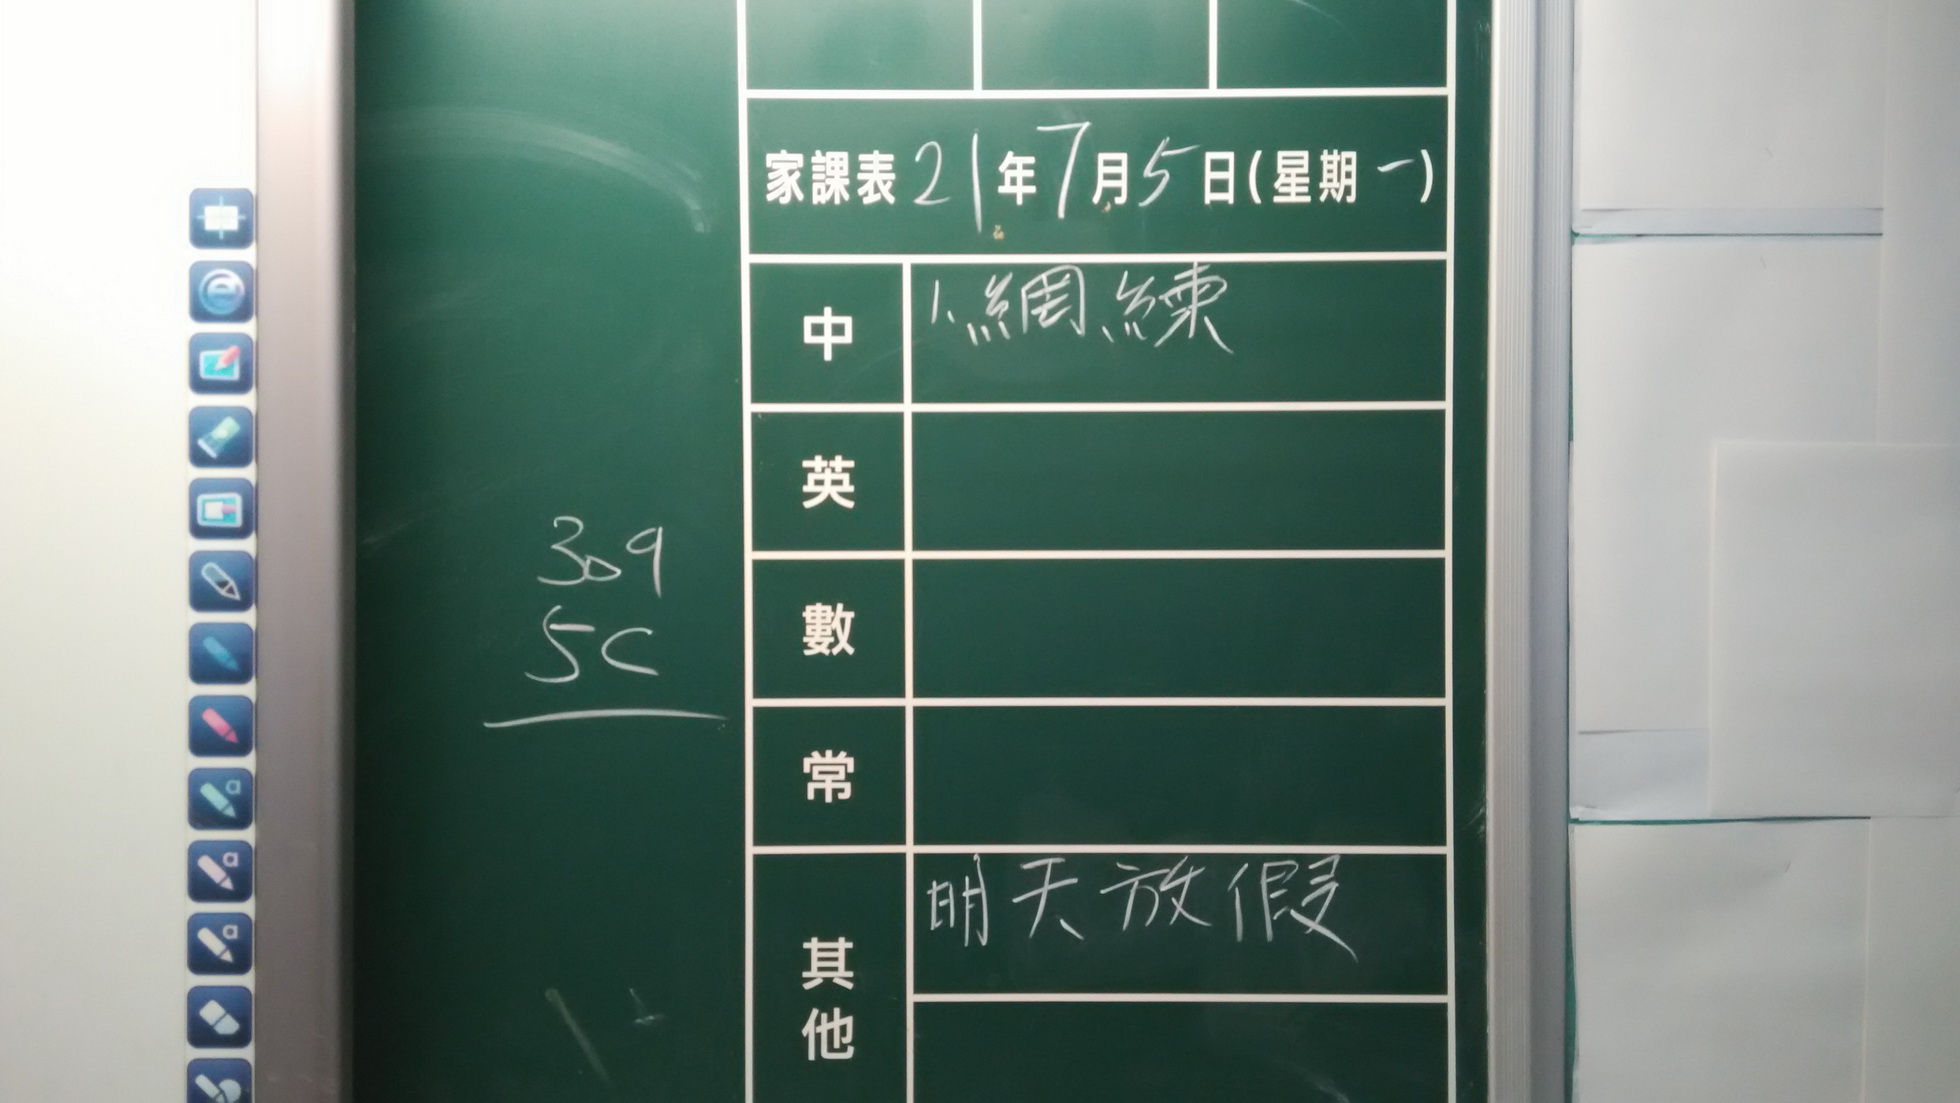 家課表21年7月5日(星期一)
中
1.網練
英
309
數
5C
常
其他
明天放假